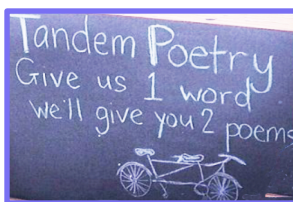 Tandem Poetry
Give us 1 word
we'll give you 2 poems